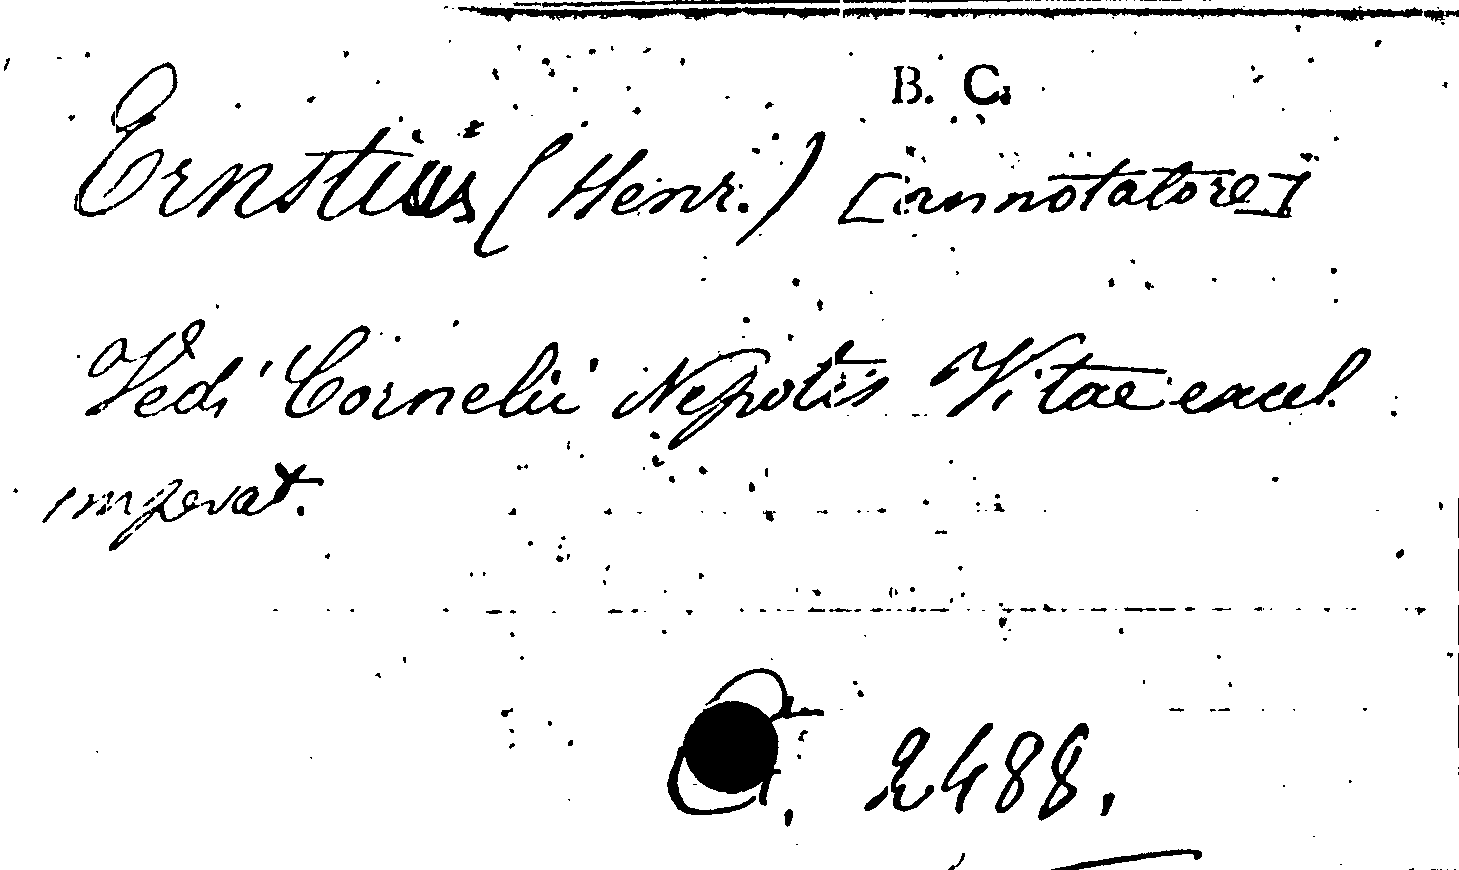 B. C.
Ernstius (Henr.) [annotatore]
Vedi Cornelii Nepotis Vitae excel.
imperat.
2488.